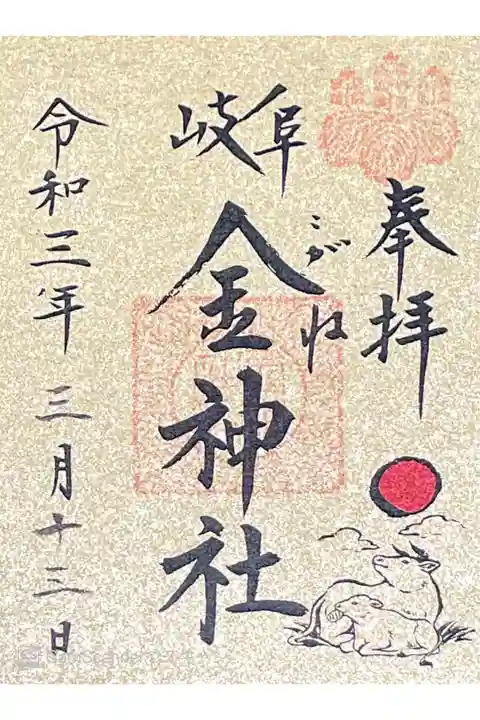 奉拝
岐阜
金神社
こがね
令和三年 三月十三日